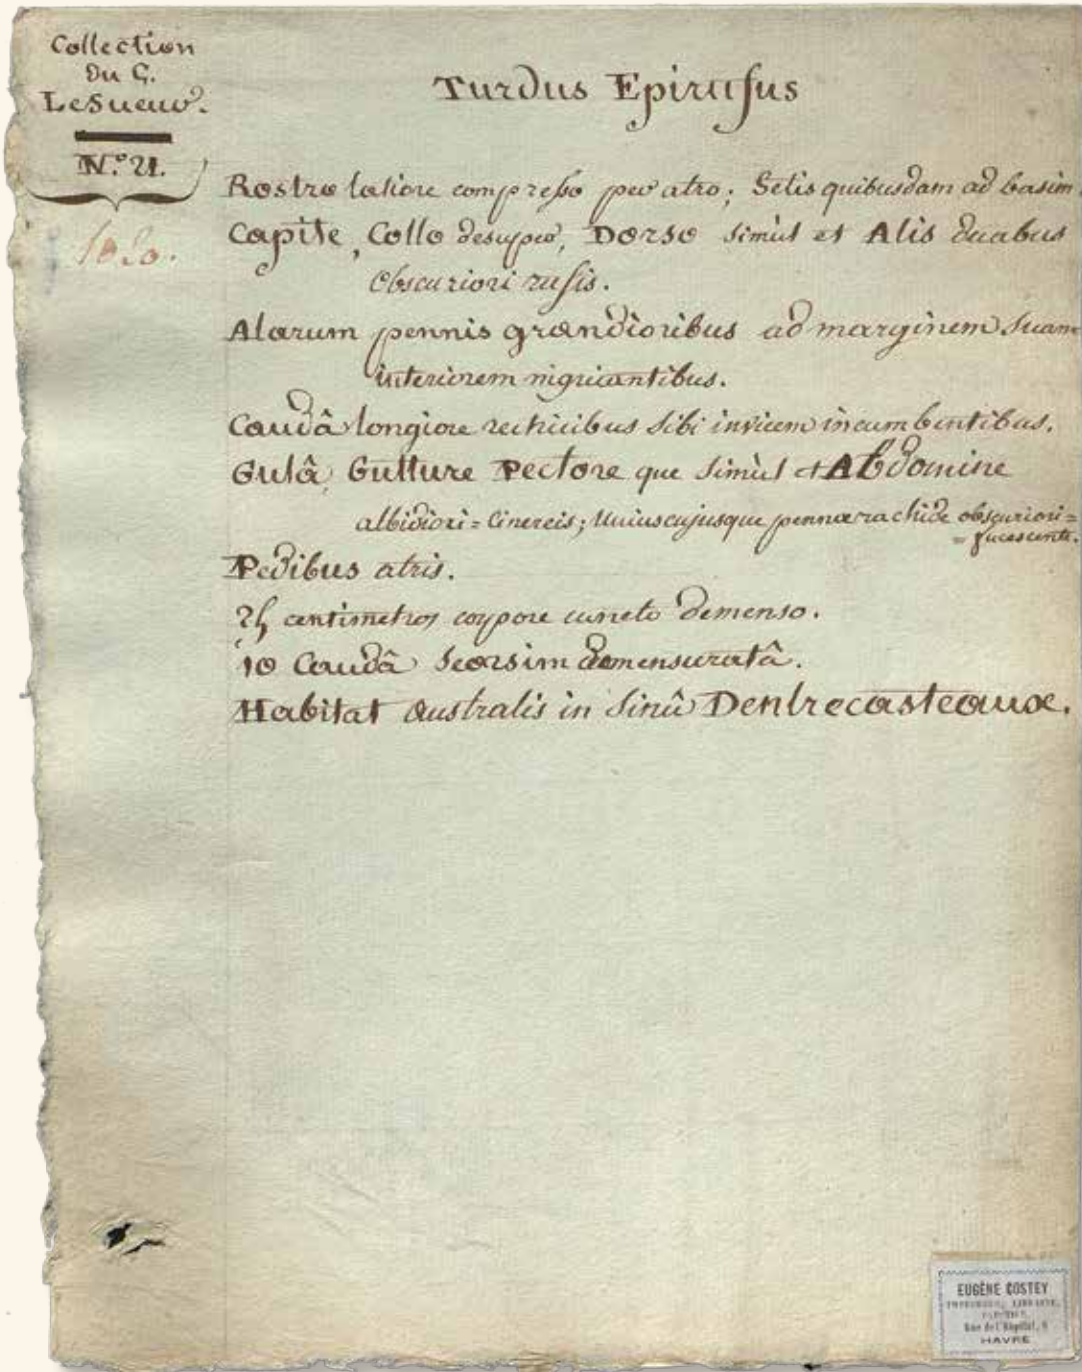 Collection
du C.
LeSueur.
N.° 21.
Turdus Epirufus
Rostro latiore compresso per atro; Setis quibusdam ad basim
Capite, Collo desuper, Dorso simùl et Alis duabus
obscuriori rufis.
Alarum pennis grandioribus ad marginem suam
interiorem nigricantibus.
Caudâ longiore rectricibus sibi invicem incumbentibus.
Gulâ, Gutture Pectore que simùl et Abdomine
albidiori = Cinereis; Uniuscujusque pennæ rachide obscuriori =
= fucescente.
Pedibus atris.
centimetros corpore cuncto demenso.
10 Caudâ seorsim demensuratâ.
Habitat australis in sinû Dentrecasteaux.
EUGÈNE COSTEY
IMPRIMEUR, LIBRAIRE,
PAPETIER,
Rue de l'Hôpital,
HAVRE